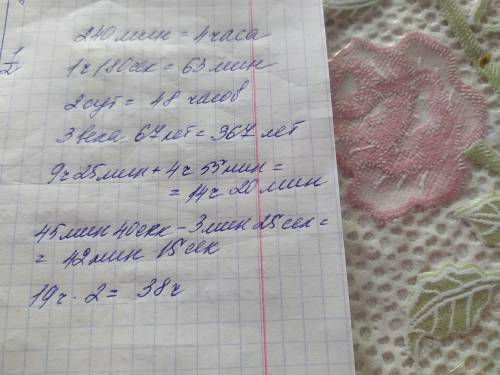 240 мин = 4 часа
1ч 180сек = 63 мин
2 сут = 48 часов
3 века 67 лет = 367 лет
9ч 25мин + 4ч 55мин =
= 14ч 20 мин
45мин 40секк - 3мин 25сек =
= 42мин 15сек
19ч · 2 = 38ч